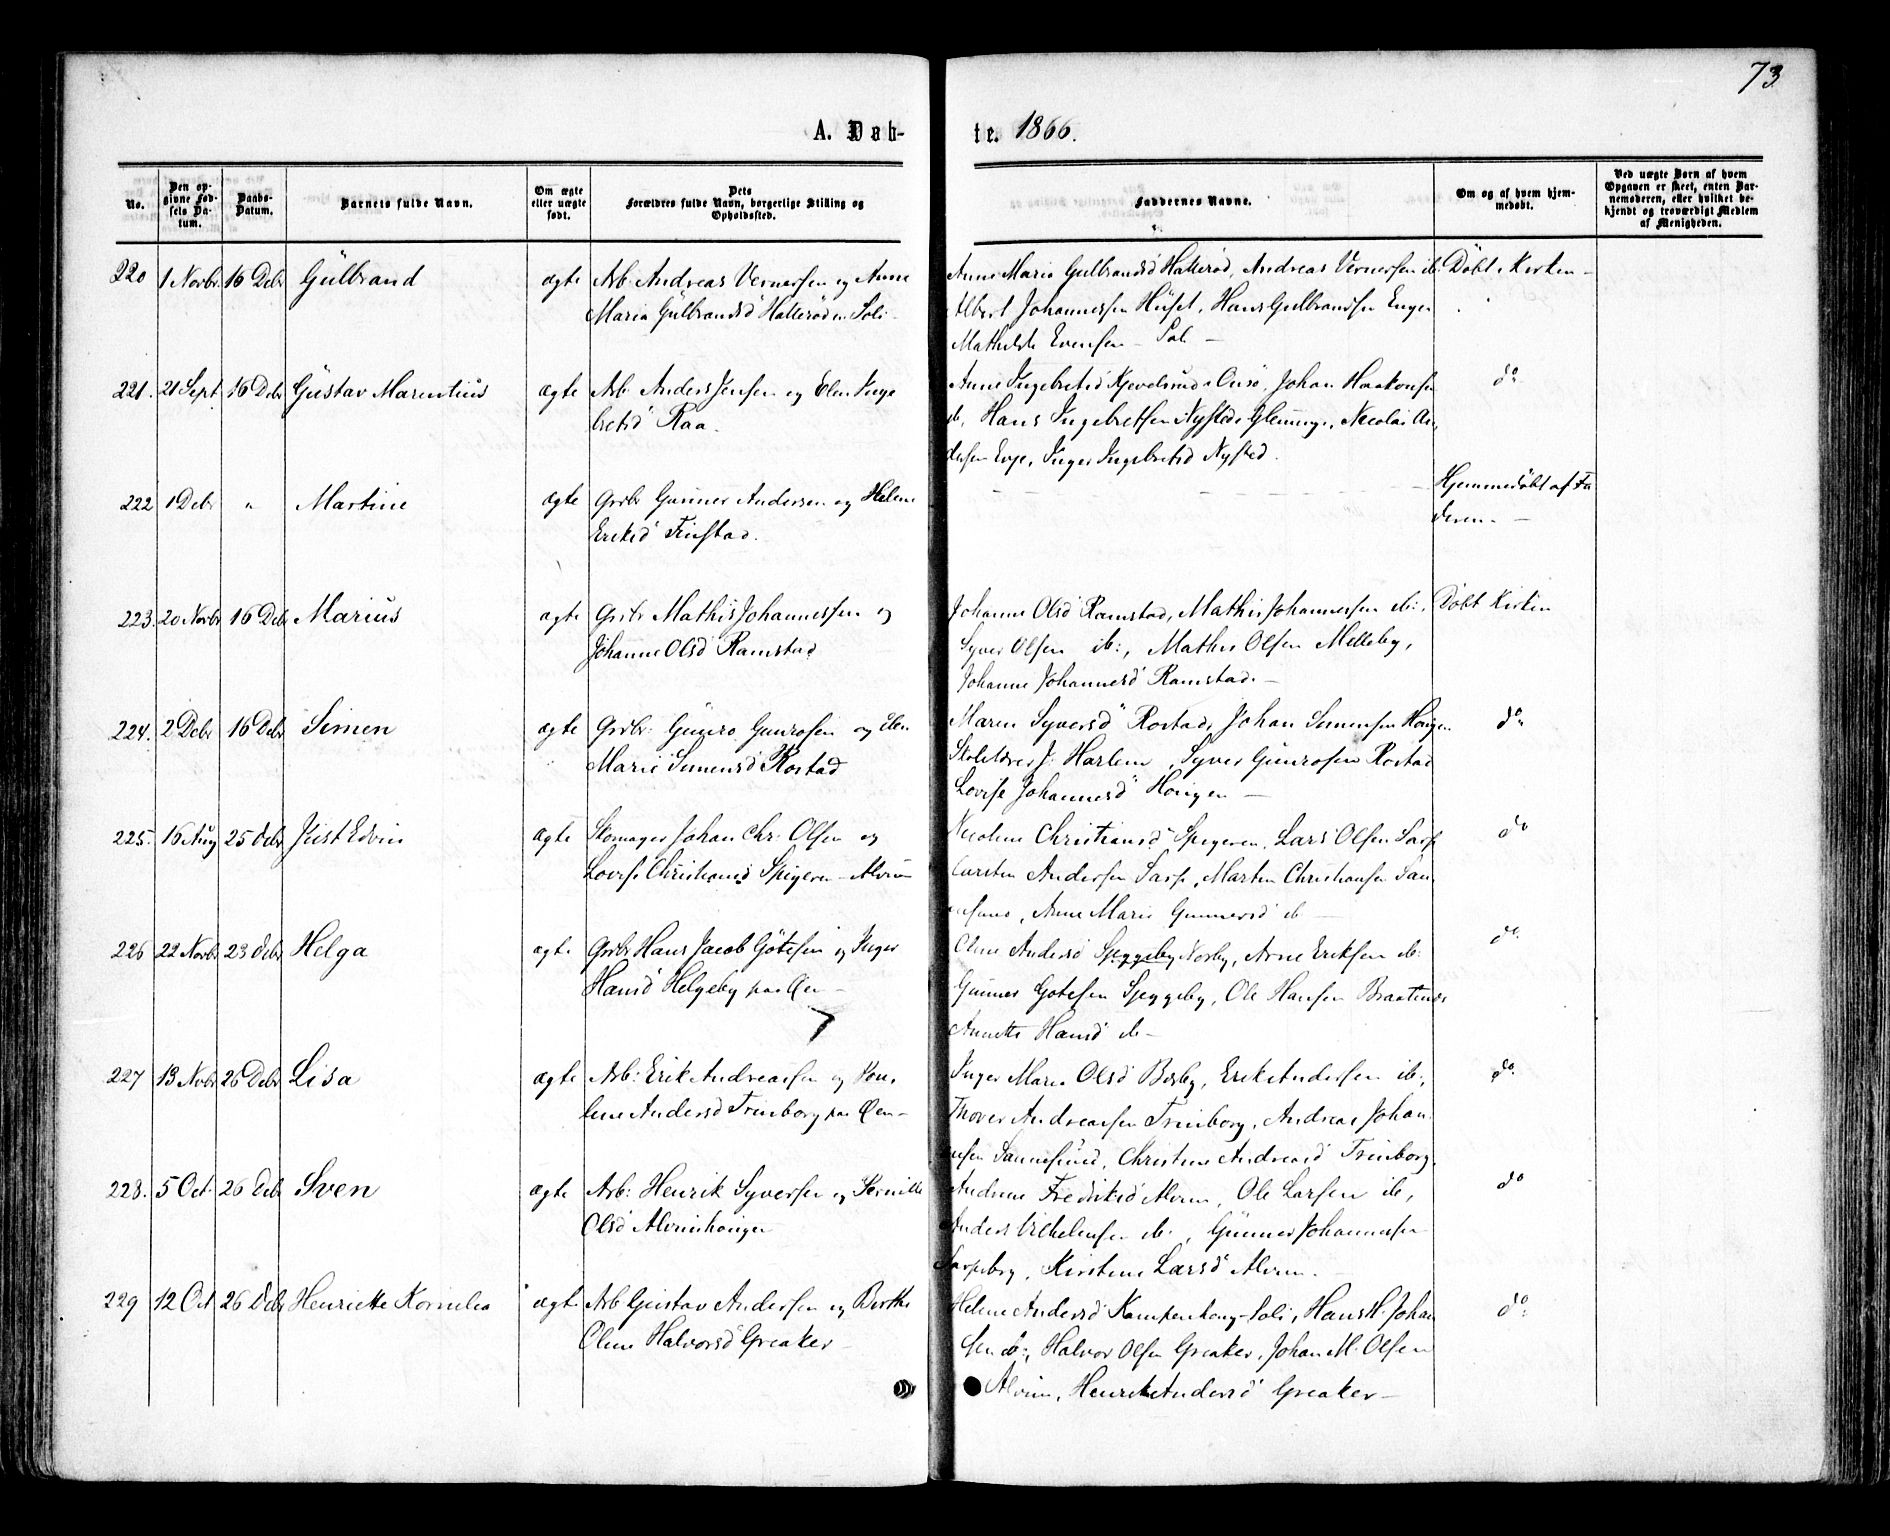 73
A. Døb-
te. 1866.
No.
Den op-
givne Fød-
sels Da-
tum.
Daabs-
Datum.
Barnets fulde Navn.
Om ægte
eller uægte
født.
Dets
Forældres fulde Navn, borgerlige Stilling og
Opholdssted.
Faddernes Navne.
Om og af hvem hjem-
medøbt.
Ved uægte Børn af hvem
Opgaven er skeet, enten Bar-
nemoderen, eller hvilket be-
kjendt og troværdigt Medlem
af Menigheden.
220 1 Novbr 16 Debr Gulbrand ægte Arb: Andreas Vernersen og Anne
Maria Gulbrandsd Hatterød i Soli
Anne Maria Gulbrandsd Hatterød, Andreas Vernersen ib: Døbt i Kirken
Albert Johannessen Huset, Hans Gulbrandsen Enger
Mathilde Evensen Soli
221. 21 Sept 16 Debr Gustav Marentius ægte Arb Anders Jensen og Elen Inge
bretsd Raa.
Anne Ingebretsd Onsø, Johan Haakonsen do
ib, Hans Ingebretsen Nysted i Glemmge, Nicolai An,
dersen Evje, Inger Ingebretsd Nysted.
222 1 Debr " Martine ægte Grbr Gunner Andersen og Helene
Eriksd Finstad.
Hjemmedøbt af Fa
deren.
223. 20 Novbr 16 Debr Marius ægte Grbr Mathis Johannessen og
Johanne Olsd Ramstad
Johanne Olsd Ramstad, Mathis Johannessen ib:, Døbt Kirken
Syver Olsen ib:, Mathis Olsen Melleby,
Johanne Johannesd Ramstad.
224. 2 Debr 16 Debr Simen ægte Grbr: Gunro Gunrosen og Elen
Marie Simensd Rostad
Maren Syversd Rostad, Johan Simensen Hougen do
J. Harlem, Syver Gunrosen Rostad
Lovise Johannesd Hougen
225. 16 Aug 25 Debr Just Edvin ægte Skomager Johan Chr. Olsen og
Lovise Christiansd Spigeren Alvim
Nicoline Christiansd Spigeren, Lars Olsen Sarp do
Carsten Andersen Sarp, Marten Christiansen San,
nesund, Anne Marie Gunnersd ib
226 22 Novbr 23 Debr Helga ægte Grbr Hans Jacob Götesen og Inger
Hansd Helgeby paa Øen
Oline Andersd Spyggeby Norby, Arne Eriksen ib: do
Gunner Gotesen Spyggeby, Ole Hansen Braatene
Annette Hansd ib
227 13 Novbr 26 Debr Lisa ægte Arb: Erik Andreassen og Pou,
line Andersd Trinborg paa Øen
Inger Marie Olsd Bosby, Erik Andersen ib:, do
Thover Andreassen Trinborg, Andreas Johan
nesen Sannesund, Christine Andreasd Trinborg.
228. 5 Oct. 26 Debr Sven ægte Arb: Henrik Syversen og Pernille
Olsd Alvimhougen
Andrine Fredriksd Alvim, Ole Larsen ib, do
Anders Vilhelmsen ib:, Gunner Johannesen
Sarpsborg, Kirstine Larsd Alvim.
229 12 Oct 26 Debr Henriette Kornelia ægte Arb Gustav Andersen og Berthe
Oline Halvorsd Greaker
Helene Andersd Kampenhoug Soli, Hans H. Johan do
sen ib:, Halvor Olsen Greaker, Johan M. Olsen
Alvim, Henrikke Andersd Greaker